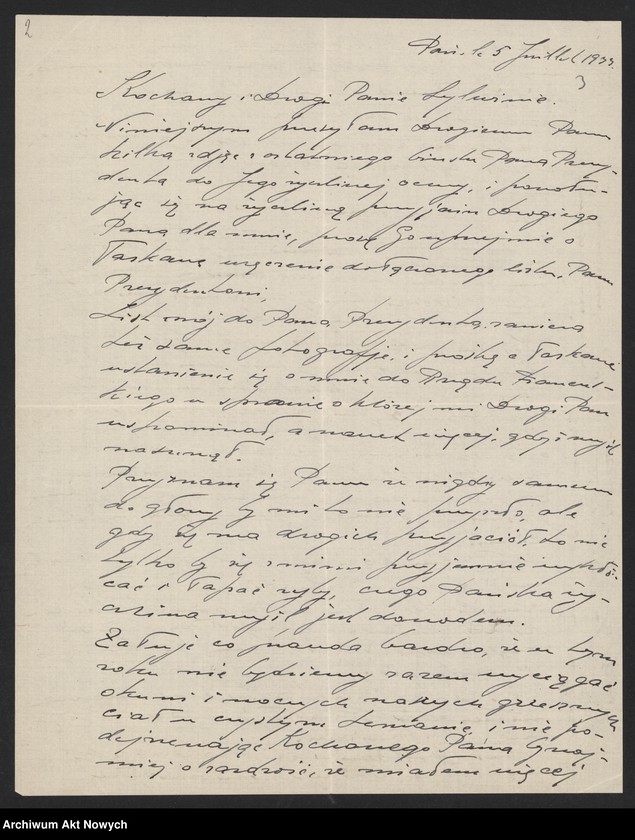 2
Paris, le 5 Juillet 1933.
3
Kochany i Drogi Panie Sylwinie.
Niniejszym przesyłam Drogiemu Panu
kilka zdjęć z ostatniego biustu Pana Prezy-
denta do Jego życzliwej oceny, i powołu-
jąc się na życzliwą przyjaźń Drogiego
Pana dla mnie, proszę Go uprzejmie o
łaskawe wręczenie dołączonego listu, Panu
Prezydentowi,
List mój do Pana Prezydenta, zawiera
też same fotografje, i prośbę o łaskawe
wstawienie się o mnie do Rządu Francus-
kiego w sprawie o której mi Drogi Pan
wspominał, a nawet więcej, gdyż myśl
nasunął.
Przyznam się Panu że nigdy samemu
do głowy by mi to nie przyszło, ale
gdy się ma drogich przyjaciół, to nie
tylko by się z nimi przyjemnie wykłó-
cać i łapać ryby, czego Pańska ży-
czliwa myśl jest dowodem.
Żałuję co prawda bardzo, że w tym
roku nie będziemy razem wyciągać
okuni i moczyć naszych grzesznych
ciał w czystym Lemanie, i nie po-
dejrzewając Kochanego Pana bynaj-
mniej o zazdrość, że miałem więcej
Archiwum Akt Nowych